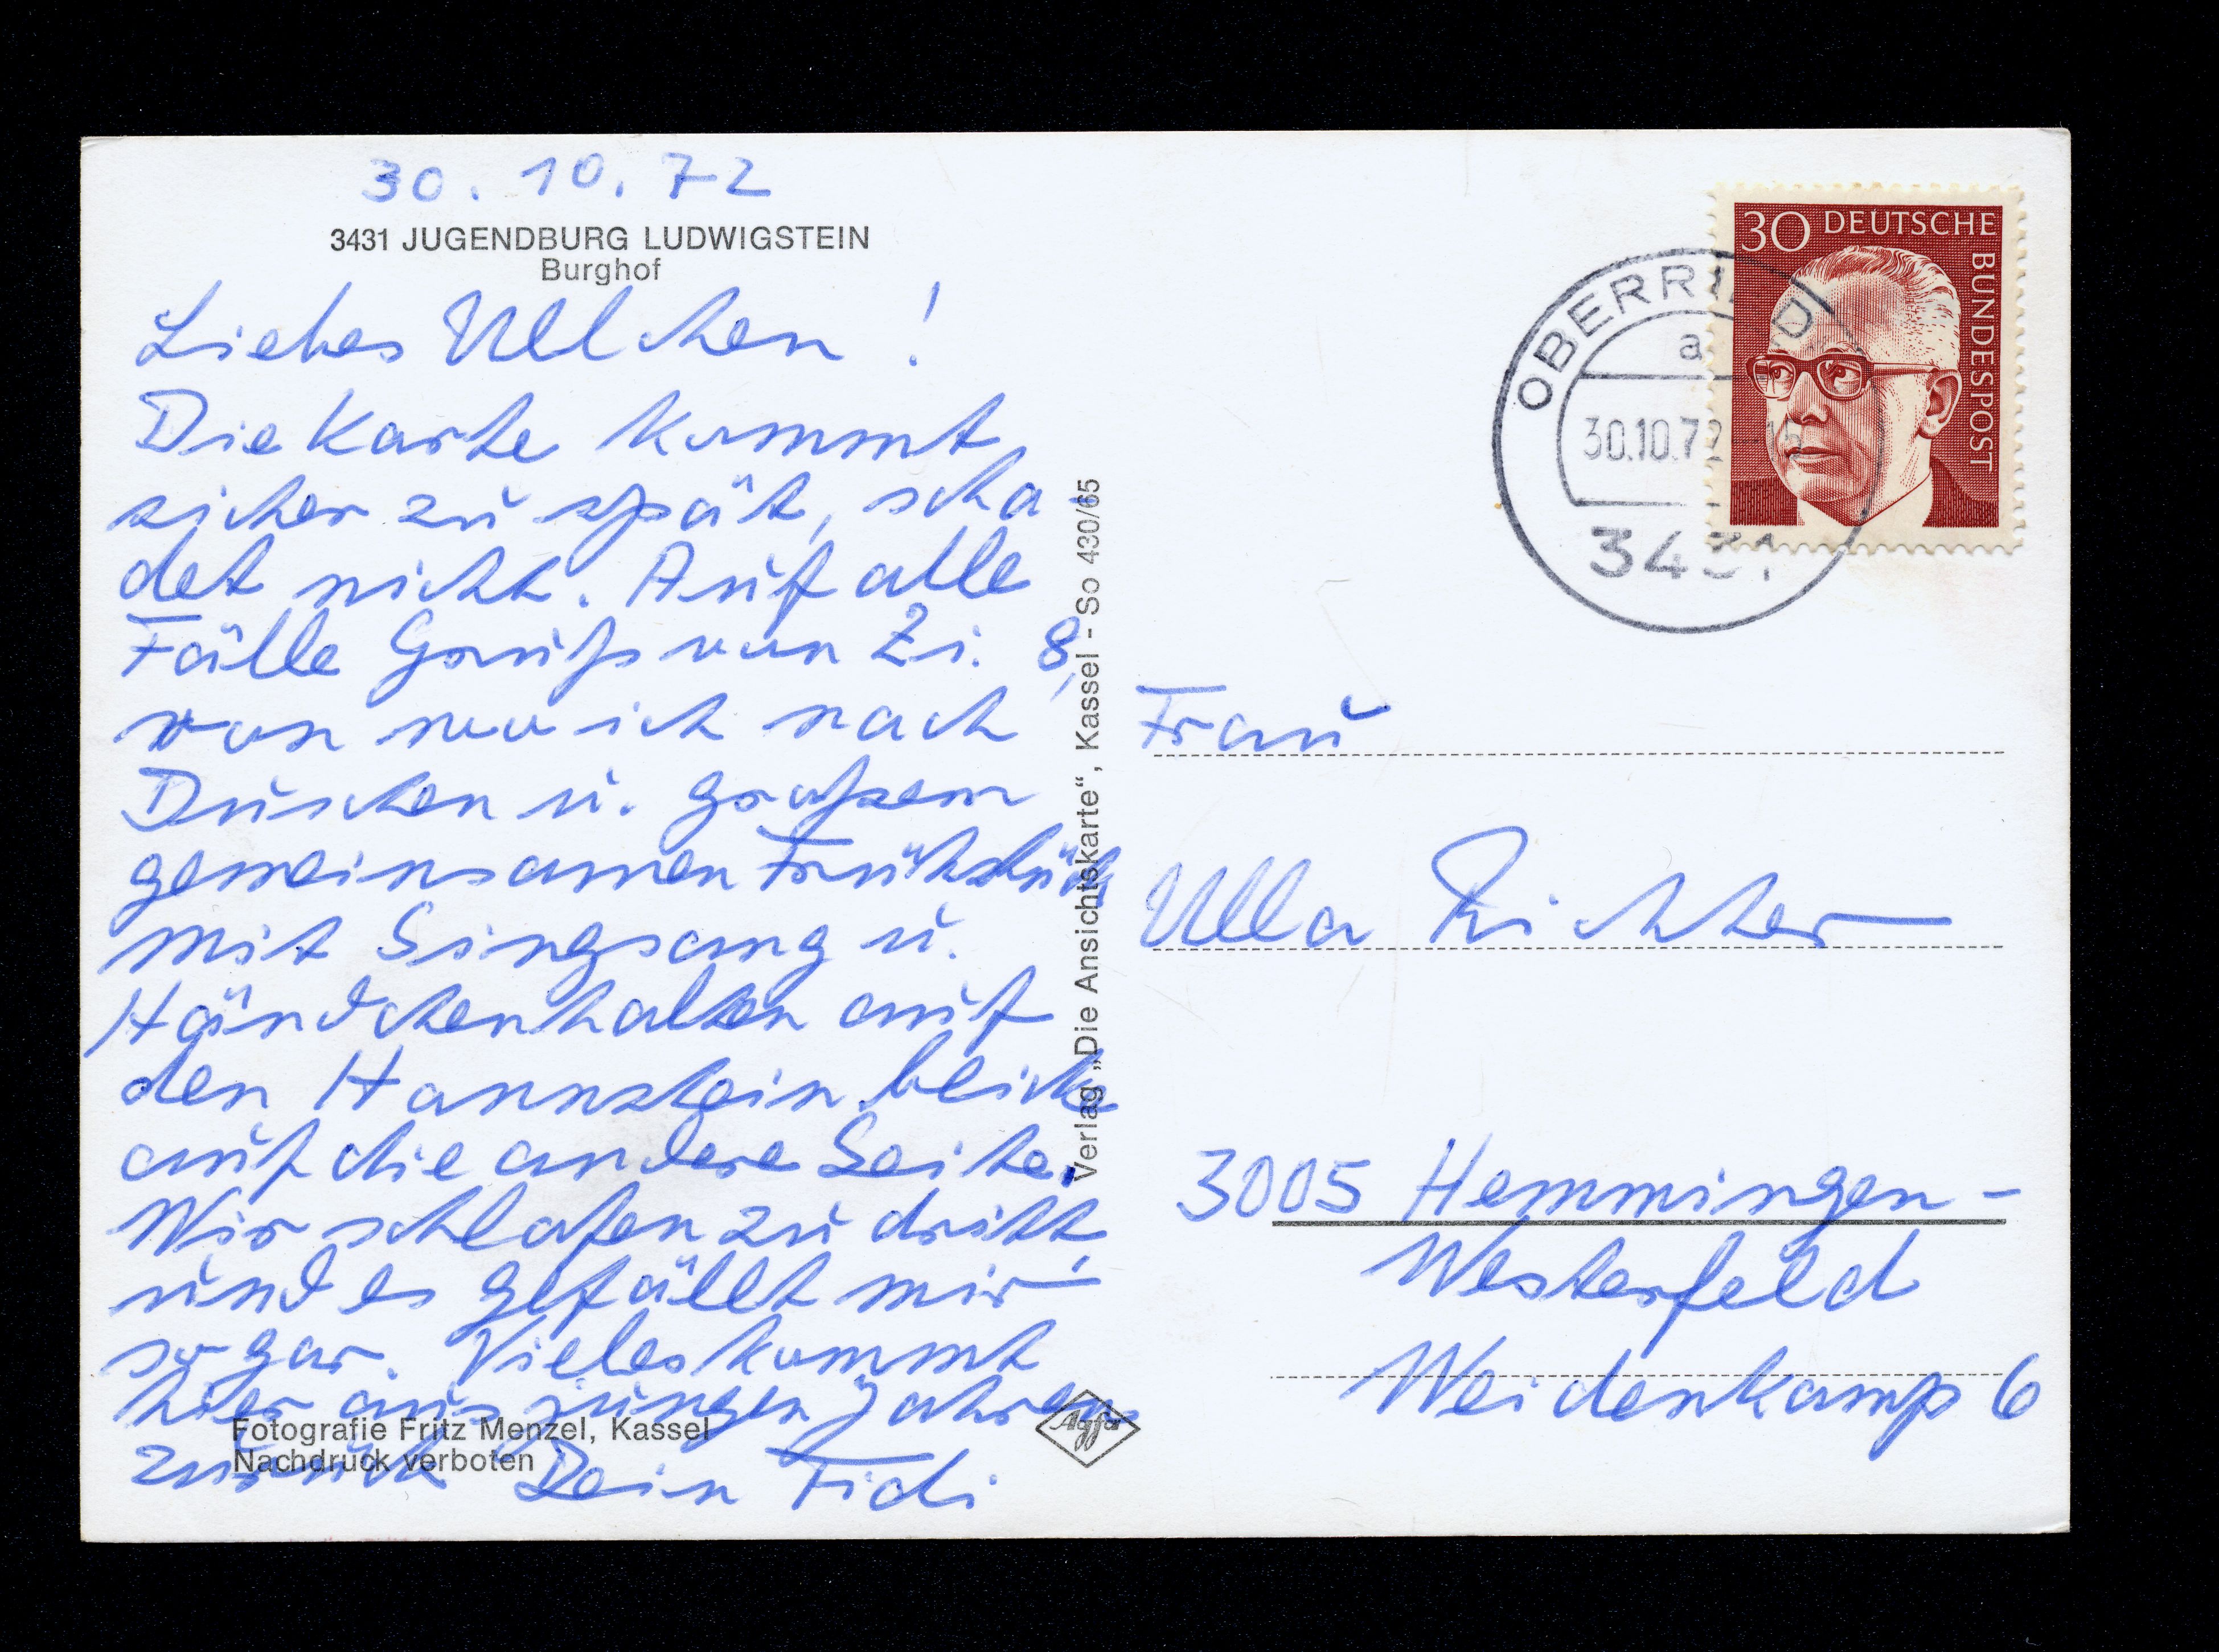 30.10.72
3431 JUGENDBURG LUDWIGSTEIN
Burghof
Liebes Ullchen!
Die Karte kommt
sicher zu spät, scha
det nicht. Auf alle
Fälle Gruß von Zi. 8,
von wo ich nach
Duschen u. großem
gemeinsamen Frühstück
mit Singsang u.
Händchenhalten auf
den Hannstein blicke
auf die andere Seite.
Wir schlafen zu dritt,
und es gefällt mir
sogar. Vieles kommt
hier aus jungen Jahren
zurück Dein Fidi
Fotografie Fritz Menzel, Kassel
Nachdruck verboten
Agfa
Verlag „Die Ansichtskarte“, Kassel - So 430/65
30 DEUTSCHE
BUNDESPOST
OBERRIEDEN
a
30.10.72-12
3431
Frau
Ulla Richter
3005 Hemmingen-
Westerfeld
Weidenkamp 6